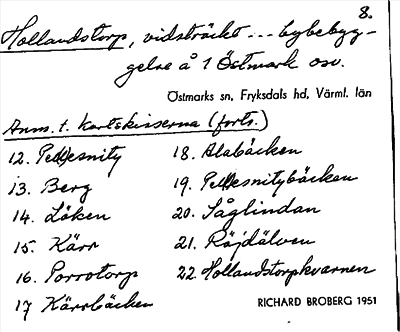 8.
Hollandstorp, vidsträckt --- bybebygg-
gelse å 1 Östmark osv.
Östmarks sn, Fryksdals hd, Värml. län
Anm. t. Kartskisserna (forts.)
12. Pellesnity
13. Berg
14. Löken
15. Kärr
16. Porrotorp
17 Kärrbäcken
18. Alabäcken
19. Pellesnitybäcken
20. Såglindan
21. Röjdälven
22. Hollandstorpkvarnen
RICHARD BROBERG 1951